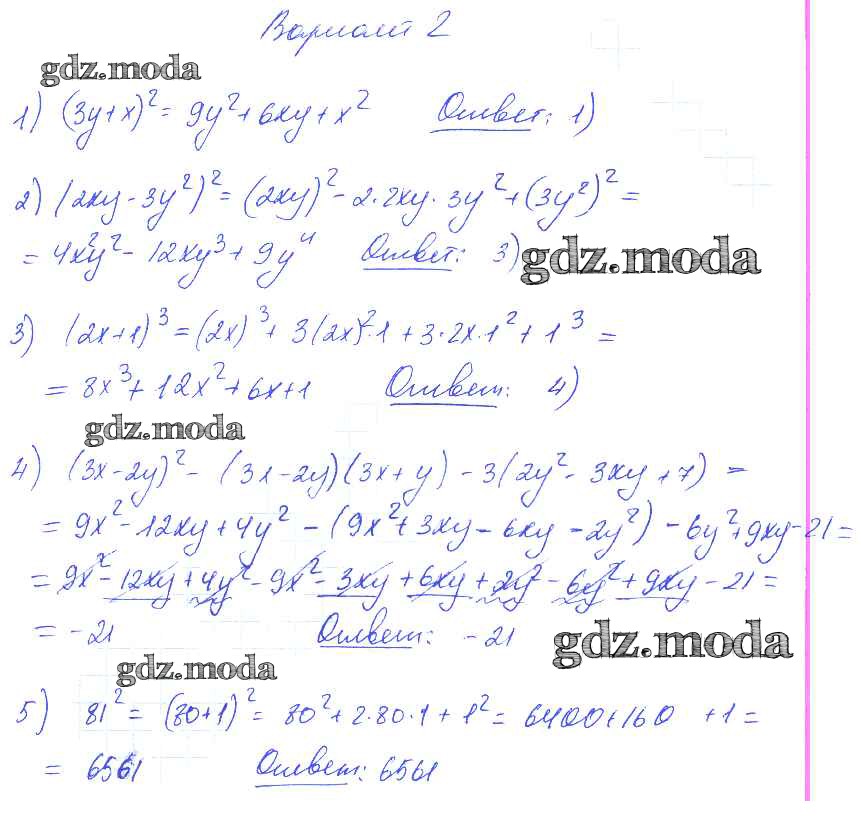 Вариант 2
gdz.moda
1) (3y+x)² = 9y² + 6xy + x² Ответ: 1)
2) (2xy - 3y²)² = (2xy)² - 2·2xy·3y² + (3y²)² =
= 4x²y² - 12xy³ + 9y⁴ Ответ: 3) gdz.moda
3) (2x+1)³ = (2x)³ + 3(2x)²·1 + 3·2x·1² + 1³ =
= 8x³ + 12x² + 6x + 1 Ответ: 4)
gdz.moda
4) (3x-2y)² - (3x-2y)(3x+y) - 3(2y² - 3xy + 7) =
= 9x² - 12xy + 4y² - (9x² + 3xy - 6xy - 2y²) - 6y² + 9xy - 21 =
= 9x² - 12xy + 4y² - 9x² - 3xy + 6xy + 2y² - 6y² + 9xy - 21 =
= -21 Ответ: -21 gdz.moda
gdz.moda
5) 81² = (80+1)² = 80² + 2·80·1 + 1² = 6400 + 160 + 1 =
= 6561 Ответ: 6561